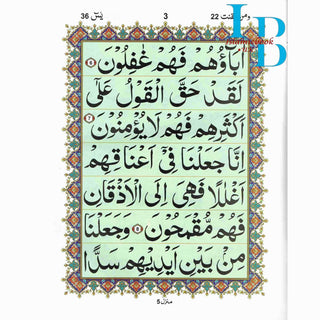 یٰسٓ 36
3
ومن یقنت 22
اٰبَآؤُهُمْ فَهُمْ غٰفِلُوْنَ ۝
لَقَدْ حَقَّ الْقَوْلُ عَلٰٓى
اَكْثَرِهِمْ فَهُمْ لَا يُؤْمِنُوْنَ ۝
اِنَّا جَعَلْنَا فِيْٓ اَعْنَاقِهِمْ
اَغْلٰلًا فَهِيَ اِلَى الْاَذْقَانِ
فَهُمْ مُّقْمَحُوْنَ ۝ وَجَعَلْنَا
مِنْۢ بَيْنِ اَيْدِيْهِمْ سَدًّا
منزل 5